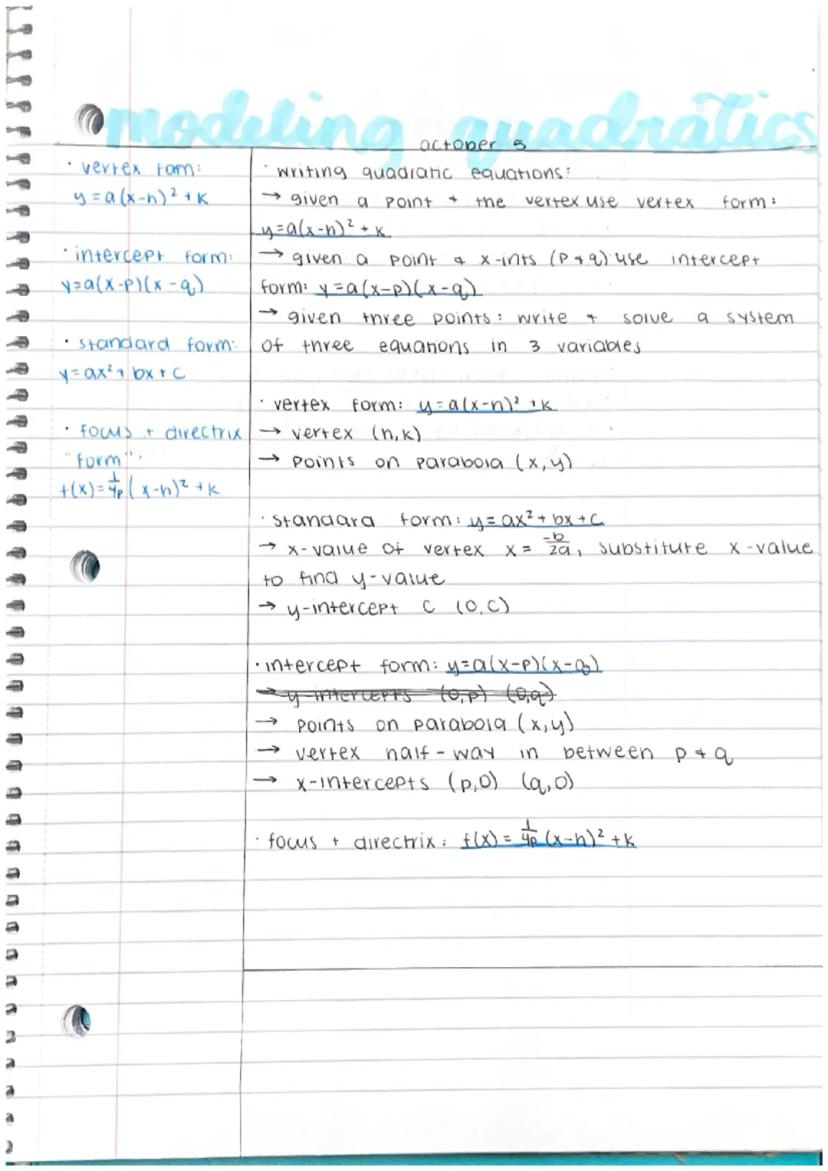 modeling quadratics
october 5
· vertex form:
y = a(x-h)² + k
· intercept form:
y=a(x-p)(x-q)
· standard form:
y=ax²+bx+c
· focus + directrix
"form":
f(x)=1/4p(x-h)²+k
· writing quadratic equations:
→ given a point + the vertex use vertex form:
y=a(x-h)²+k
→ given a point & x-ints (p+q) use intercept
form: y=a(x-p)(x-q)
→ given three points: write + solve a system
of three equations in 3 variables
· vertex form: y=a(x-h)²+k
→ vertex (h,k)
→ points on parabola (x,y)
· standard form: y=ax²+bx+c
→ x-value of vertex x = -b/2a, substitute x-value
to find y-value
→ y-intercept c (0,c)
· intercept form: y=a(x-p)(x-q)
→ y-intercepts (0,p) (0,q)
→ points on parabola (x,y)
→ vertex half-way in between p+q
→ x-intercepts (p,0) (q,0)
· focus + directrix: f(x) = 1/4p (x-h)²+k